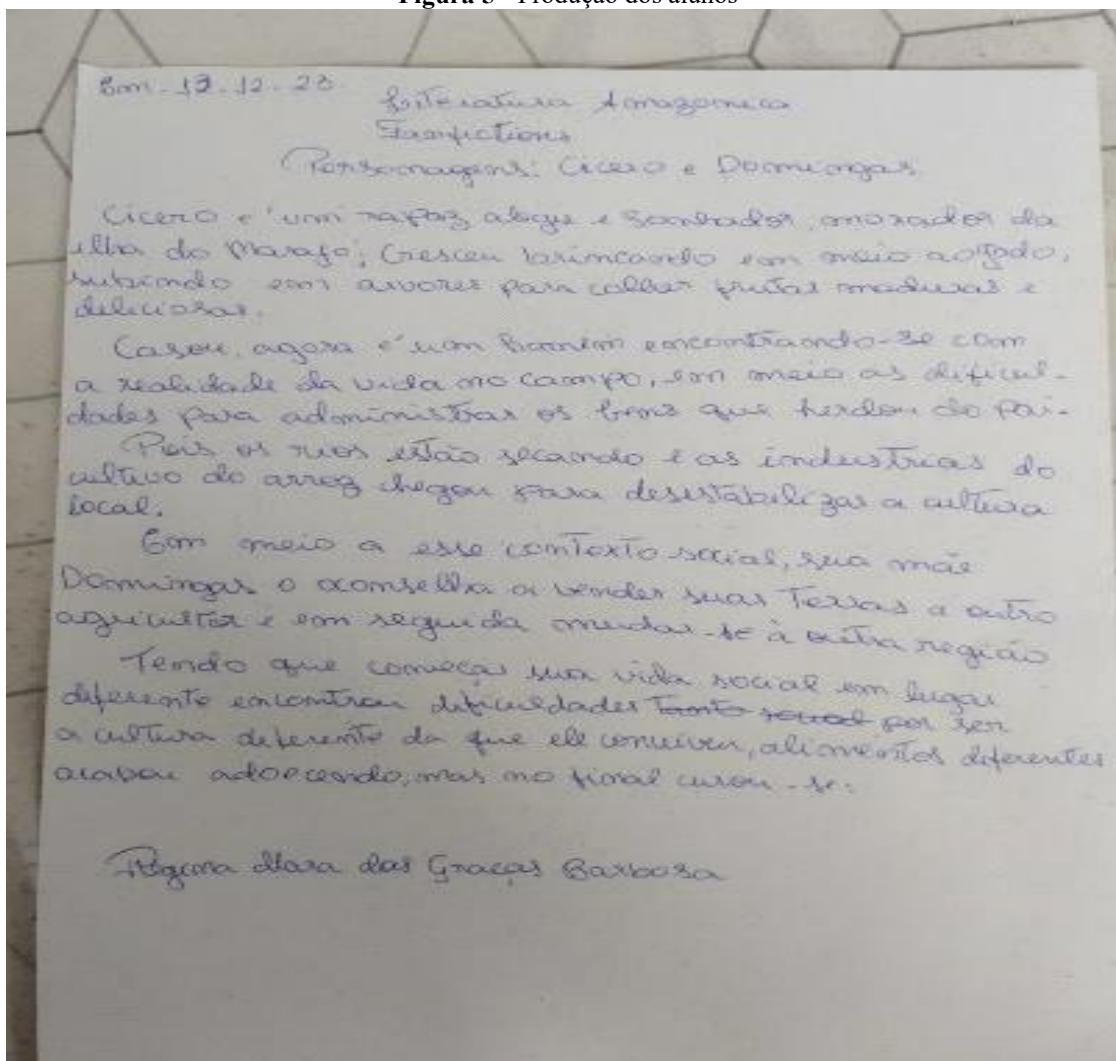 Figura 3 - Produção dos alunos
Em - 13 - 12 - 23.
Literatura Amazonica
Franfictions
Personagens: Cicero e Domingas
Cicero é um rapaz alegre e sonhador, morador da
ilha do Marajó; Cresceu brincando em meio ao gado,
subindo em arvores para colher frutas maduras e
deliciosas.
Casou, agora é um homem encontrando-se com
a realidade da vida no campo, em meio as dificul-
dades para administrar os bens que herdou do pai.
Pois os rios estão secando e as industrias do
cultivo do arroz chegou para desestabilizar a cultura
local.
Em meio a esse contexto social, sua mãe
Domingas o aconselha a vender suas Terras a outro
agricultor e em seguida mudar-se à outra região
Tendo que começar sua vida social em lugar
diferente encontrou dificuldades tanto social por ser
a cultura deferente da que ele conviveu, alimentos diferentes
acabou adoecendo, mas no final curou-se.
Regina Mara das Graças Barbosa